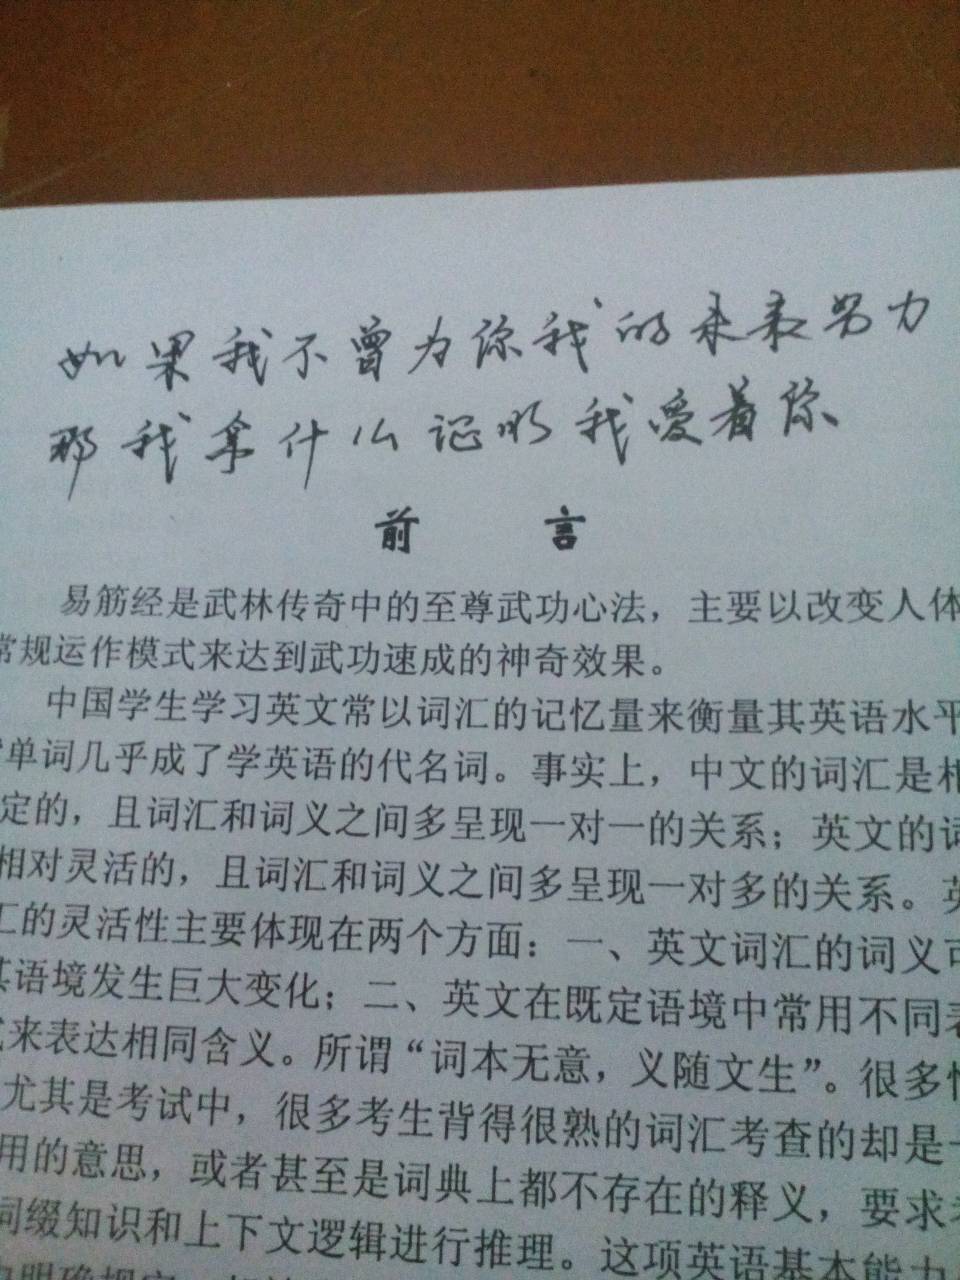 如果我不曾为你我的未来努力
那我拿什么证明我爱着你
前 言
易筋经是武林传奇中的至尊武功心法，主要以改变人体
常规运作模式来达到武功速成的神奇效果。
中国学生学习英文常以词汇的记忆量来衡量其英语水平
单词几乎成了学英语的代名词。事实上，中文的词汇是相
定的，且词汇和词义之间多呈现一对一的关系；英文的词
相对灵活的，且词汇和词义之间多呈现一对多的关系。英
汇的灵活性主要体现在两个方面：一、英文词汇的词义可
其语境发生巨大变化；二、英文在既定语境中常用不同表
式来表达相同含义。所谓“词本无意，义随文生”。很多情
尤其是考试中，很多考生背得很熟的词汇考查的却是一
用的意思，或者甚至是词典上都不存在的释义，要求考
词缀知识和上下文逻辑进行推理。这项英语基本能力
明确规定